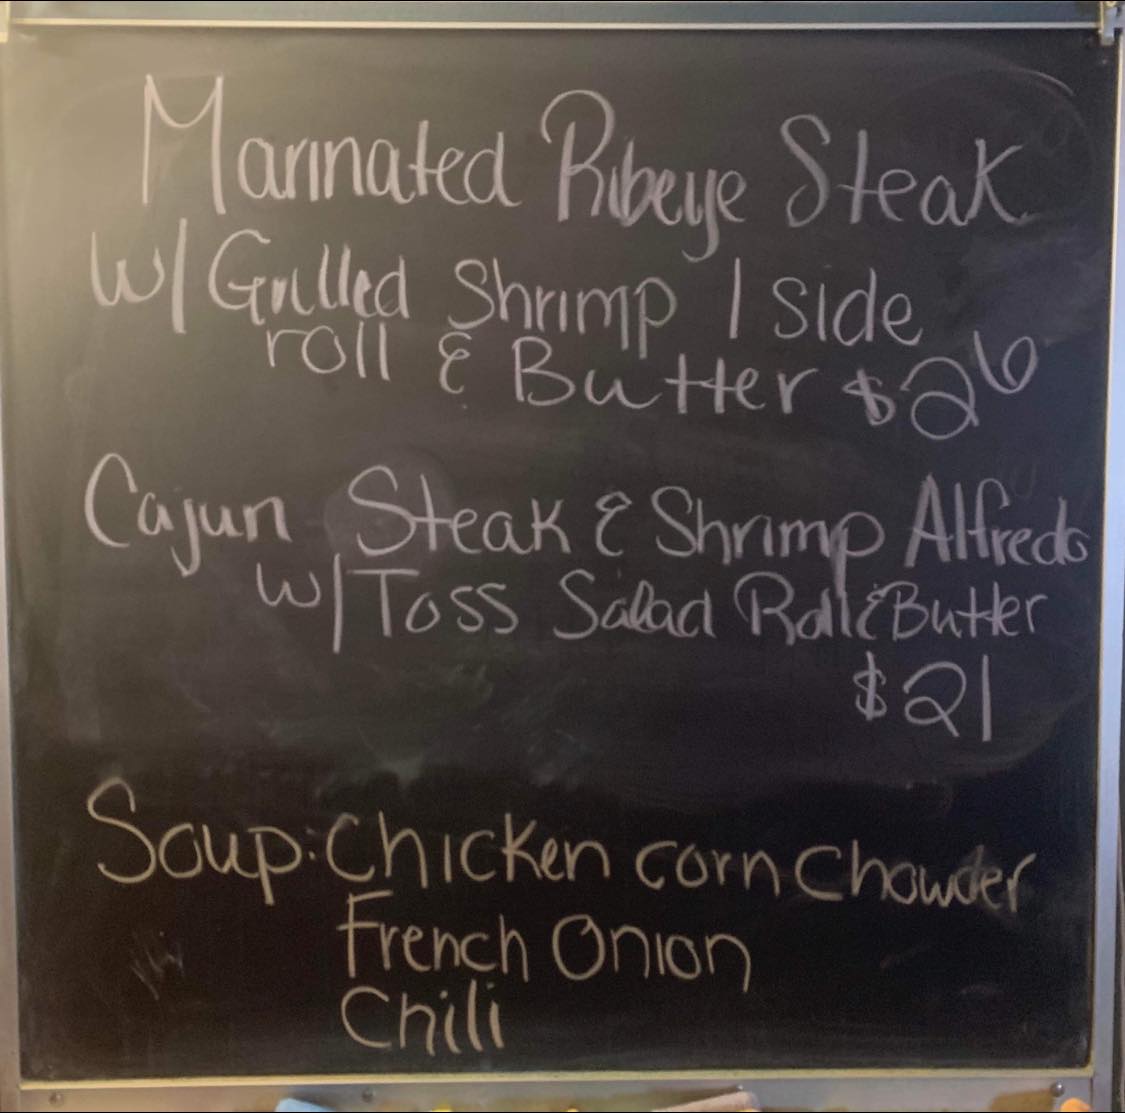 Marinated Ribeye Steak
W/ Grilled Shrimp 1 side
roll & Butter $26
Cajun Steak & Shrimp Alfredo
w/ Toss Salad Roll & Butter
$21
Soup: Chicken corn Chowder
French Onion
Chili